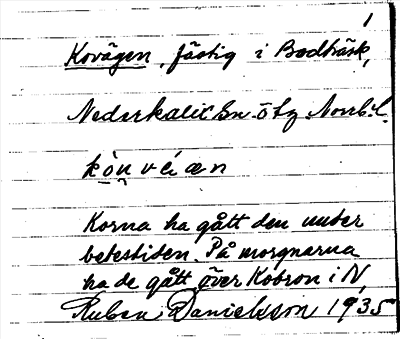 1
Kovägen, fästig i Bodträsk,
Nederkalix sn. ö tg. Norrb. l.
kòu̯véæn
Korna ha gått den under
betestiden. På morgnarna
ha de gått över Kobron i N.
Ruben Danielsson 1935